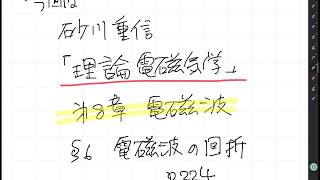 今回は
砂川重信
「理論電磁気学」
第8章 電磁波
§6 電磁波の回折
p.224